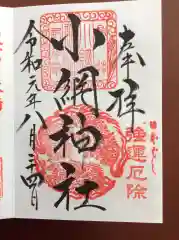 奉拝
強運厄除
小網神社
令和元年八月二十四日